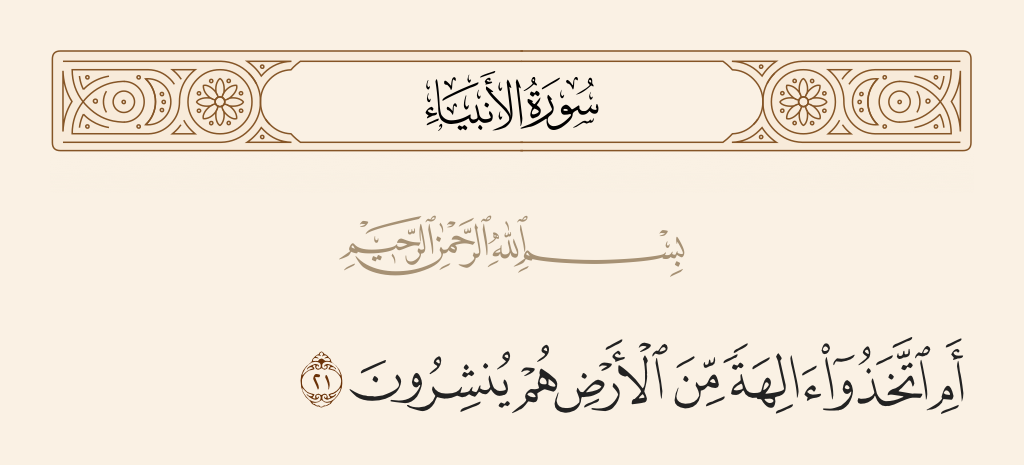 سُورَةُ الأَنبِيَاءِ
بِسْمِ ٱللَّهِ ٱلرَّحْمَٰنِ ٱلرَّحِيمِ
أَمِ ٱتَّخَذُوٓا۟ ءَالِهَةً مِّنَ ٱلْأَرْضِ هُمْ يُنشِرُونَ ٢١